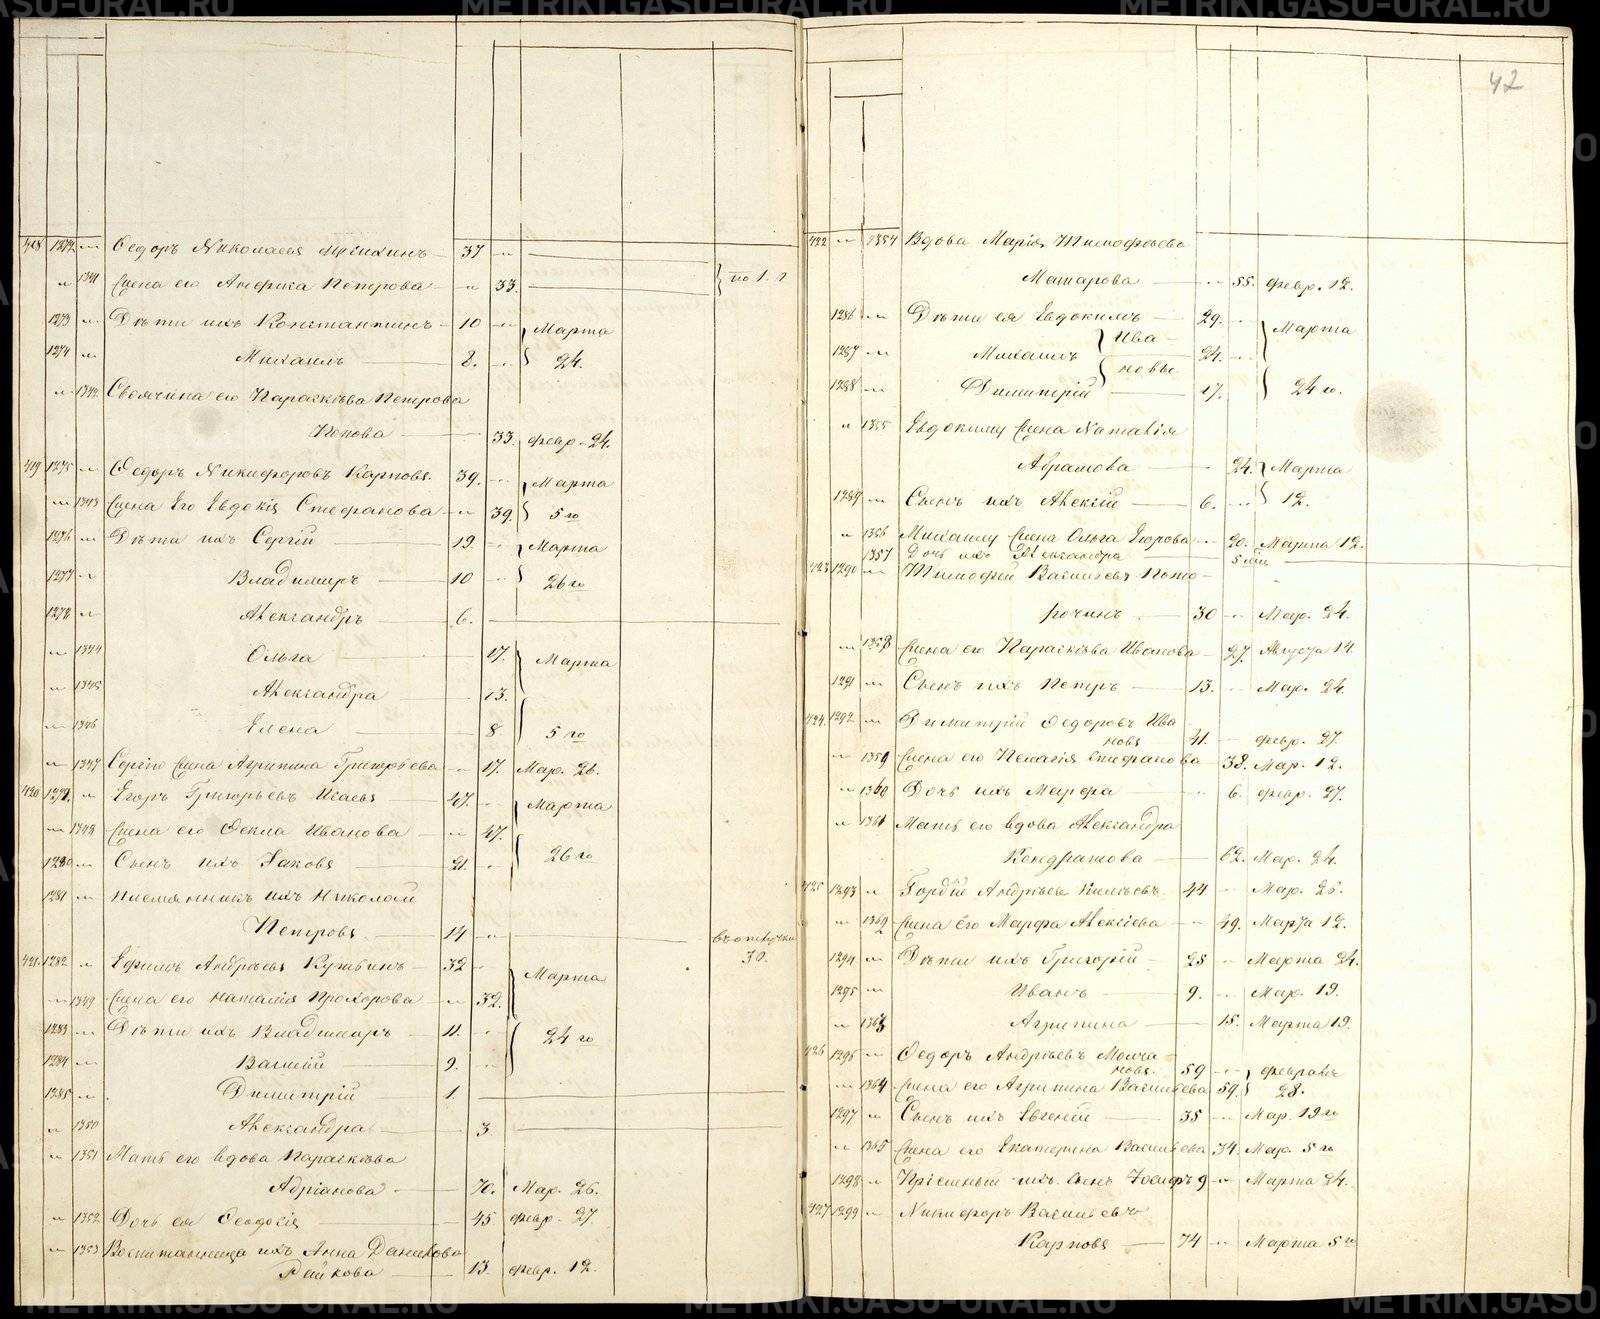 42
418 1272 Ѳедоръ Николаевъ 37
1341 Жена его Анфиса Петрова 33. по 1. 1
1273 Дѣти ихъ Константинъ 10 Марта
1274 Михаилъ 8. 24.
1342 Своячина его Параскѣва Петрова
Попова 33. февр. 24.
419 1275 Ѳедоръ Никифоровъ Карповъ. 39. Марта
1343 Жена Его Евдокія Стефанова 39. 5 го
1276 Дѣти ихъ Сергій 19. Марта
1277 Владимиръ 10 26 го
1278 Александръ 6.
1344 Ольга 17. Марта
1345 Александра 13.
1346 Елена 8 5 го
1347 Сергію Жена Агрипина Григорьева 17. Мар. 26.
420 1279 Егоръ Григорьевъ Исаевъ 47. Марта
1348 Жена его Ѳекла Иванова 47.
1280 Сынъ ихъ Іаковъ 21. 26 го
1281 племянникъ ихъ Николай
Петровъ 14 въ отлучки
30.
421. 1282 Ефимъ Андреевъ 32 Марта
1349 Жена его Наталія Прохорова 32.
1283 Дѣти ихъ Владимиръ 11. 24 го
1284 Василій 9.
1285 Димитрій 1.
1350 Александра 3.
1351 Мать его вдова Параскѣва
Адріанова 70. Мар. 26.
1352 Дочь ея Ѳеодосія 45 февр. 27.
1353 Воспитанница ихъ Анна Данилова
Райкова 13. февр. 12.
422 1354 Вдова Марія Тимофѣева
Макарова 55. февр. 12.
1286 Дѣти ея Евдокимъ 29. Марта
Ива-
1287 Михаилъ 24.
новы.
1288 Димитрій 17. 24 го.
1355 Евдокиму Жена Наталія
Абрамова 24. Марта
1289 Сынъ ихъ Алексій 6. 12.
1356 Михаилу Жена Ольга Егорова 20. Марта 12.
1357 Дочь ихъ Александра 5
423 1290 Тимофей Васильевъ Пото-
рочинъ 30 Мар. 24.
1358 Жена его Параскѣва Иванова 27. Августа 14.
1291 Сынъ ихъ Петръ 13. Мар. 24.
424. 1292 Димитрій Ѳедоровъ Ива
новъ 41. февр. 27.
1359 Жена его Пелагія Стефанова 38. Мар. 12.
1360 Дочь ихъ Марфа 6. февр. 27.
1361 Мать его вдова Александра
Кондратова 62. Мар. 24.
425 1293 Гордій Андреевъ 44 Мар. 26.
1362 Жена Его Марфа Алексіева 49. Марта 12.
1294 Дѣти ихъ Григорій 25 Марта 24.
1295 Иванъ 9. Мар. 19.
1363 Агрипина 15. Марта 19.
426 1296 Ѳедоръ Андреевъ Молча
новъ. 59 февраля
1364 Жена его Агрипина Васильева 59. 28.
1297 Сынъ ихъ Евгеній 35 Мар. 19 го
1365 Жена его Екатерина Васильева 34. Мар. 5 го
1298 Пріемный ихъ сынъ Іосифъ 9 Марта 24.
427 1299 Никифоръ Васильевъ
Карповъ 74 Марта 5 го